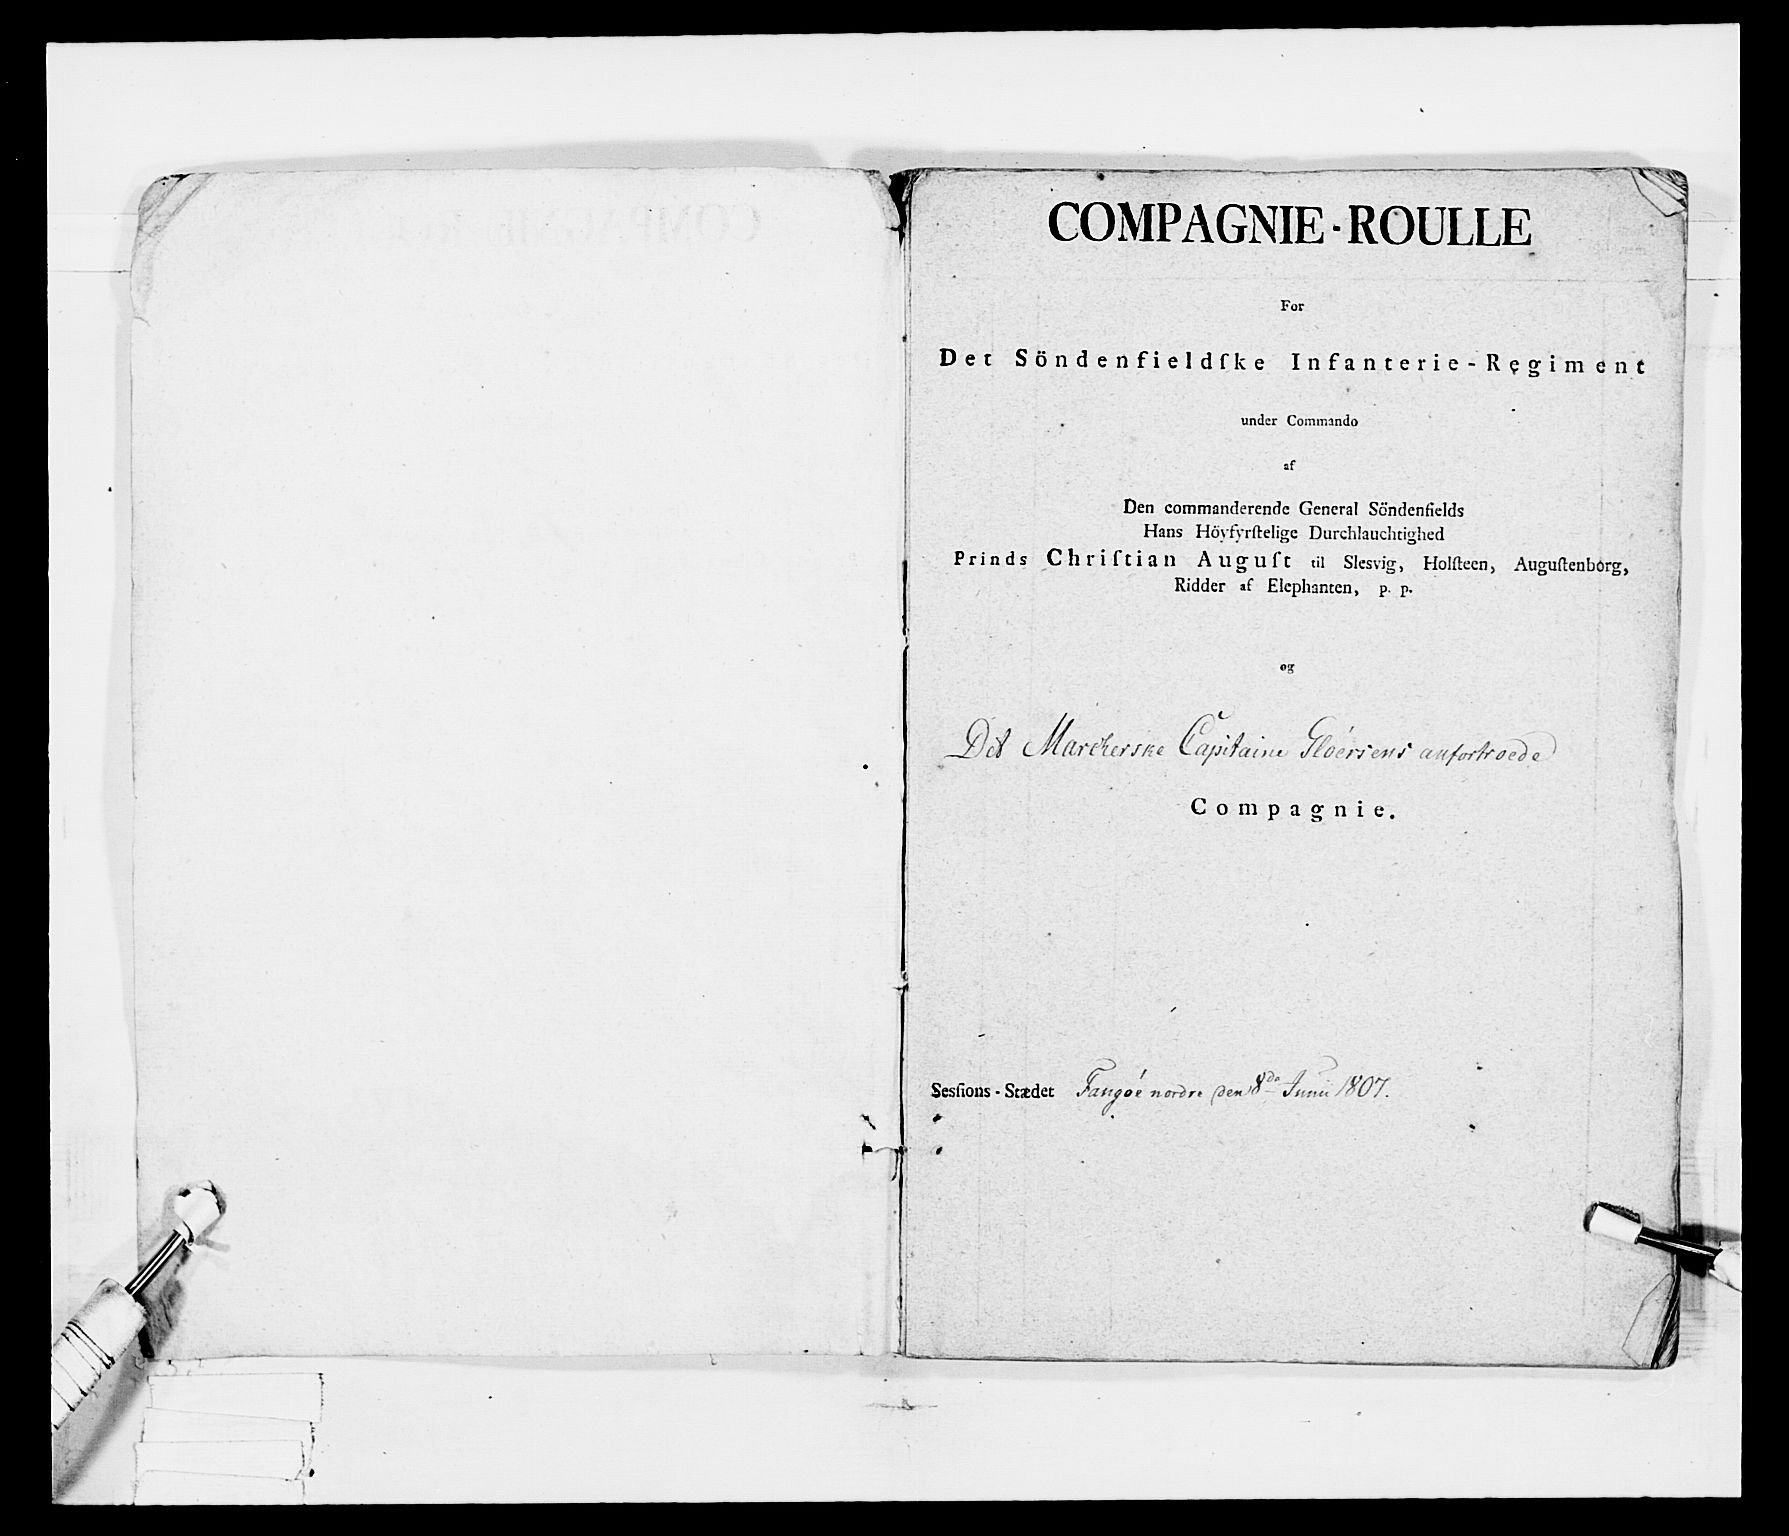 COMPAGNIE-ROULLE
For
Det Söndenfieldſke Infanterie-Regiment
under Commando
af
Den commanderende General Söndenfields
Hans Höyfyrſtelige Durchlauchtighed
Prinds Chriſtian Auguſt til Slesvig, Holſteen, Auguſtenborg,
Ridder af Elephanten, p. p.
og
Det Marcherske Capitaine Gløersens anfortroede
Compagnie.
Sesſions-Stædet Fangøe nordre den 8de Junii 1807.